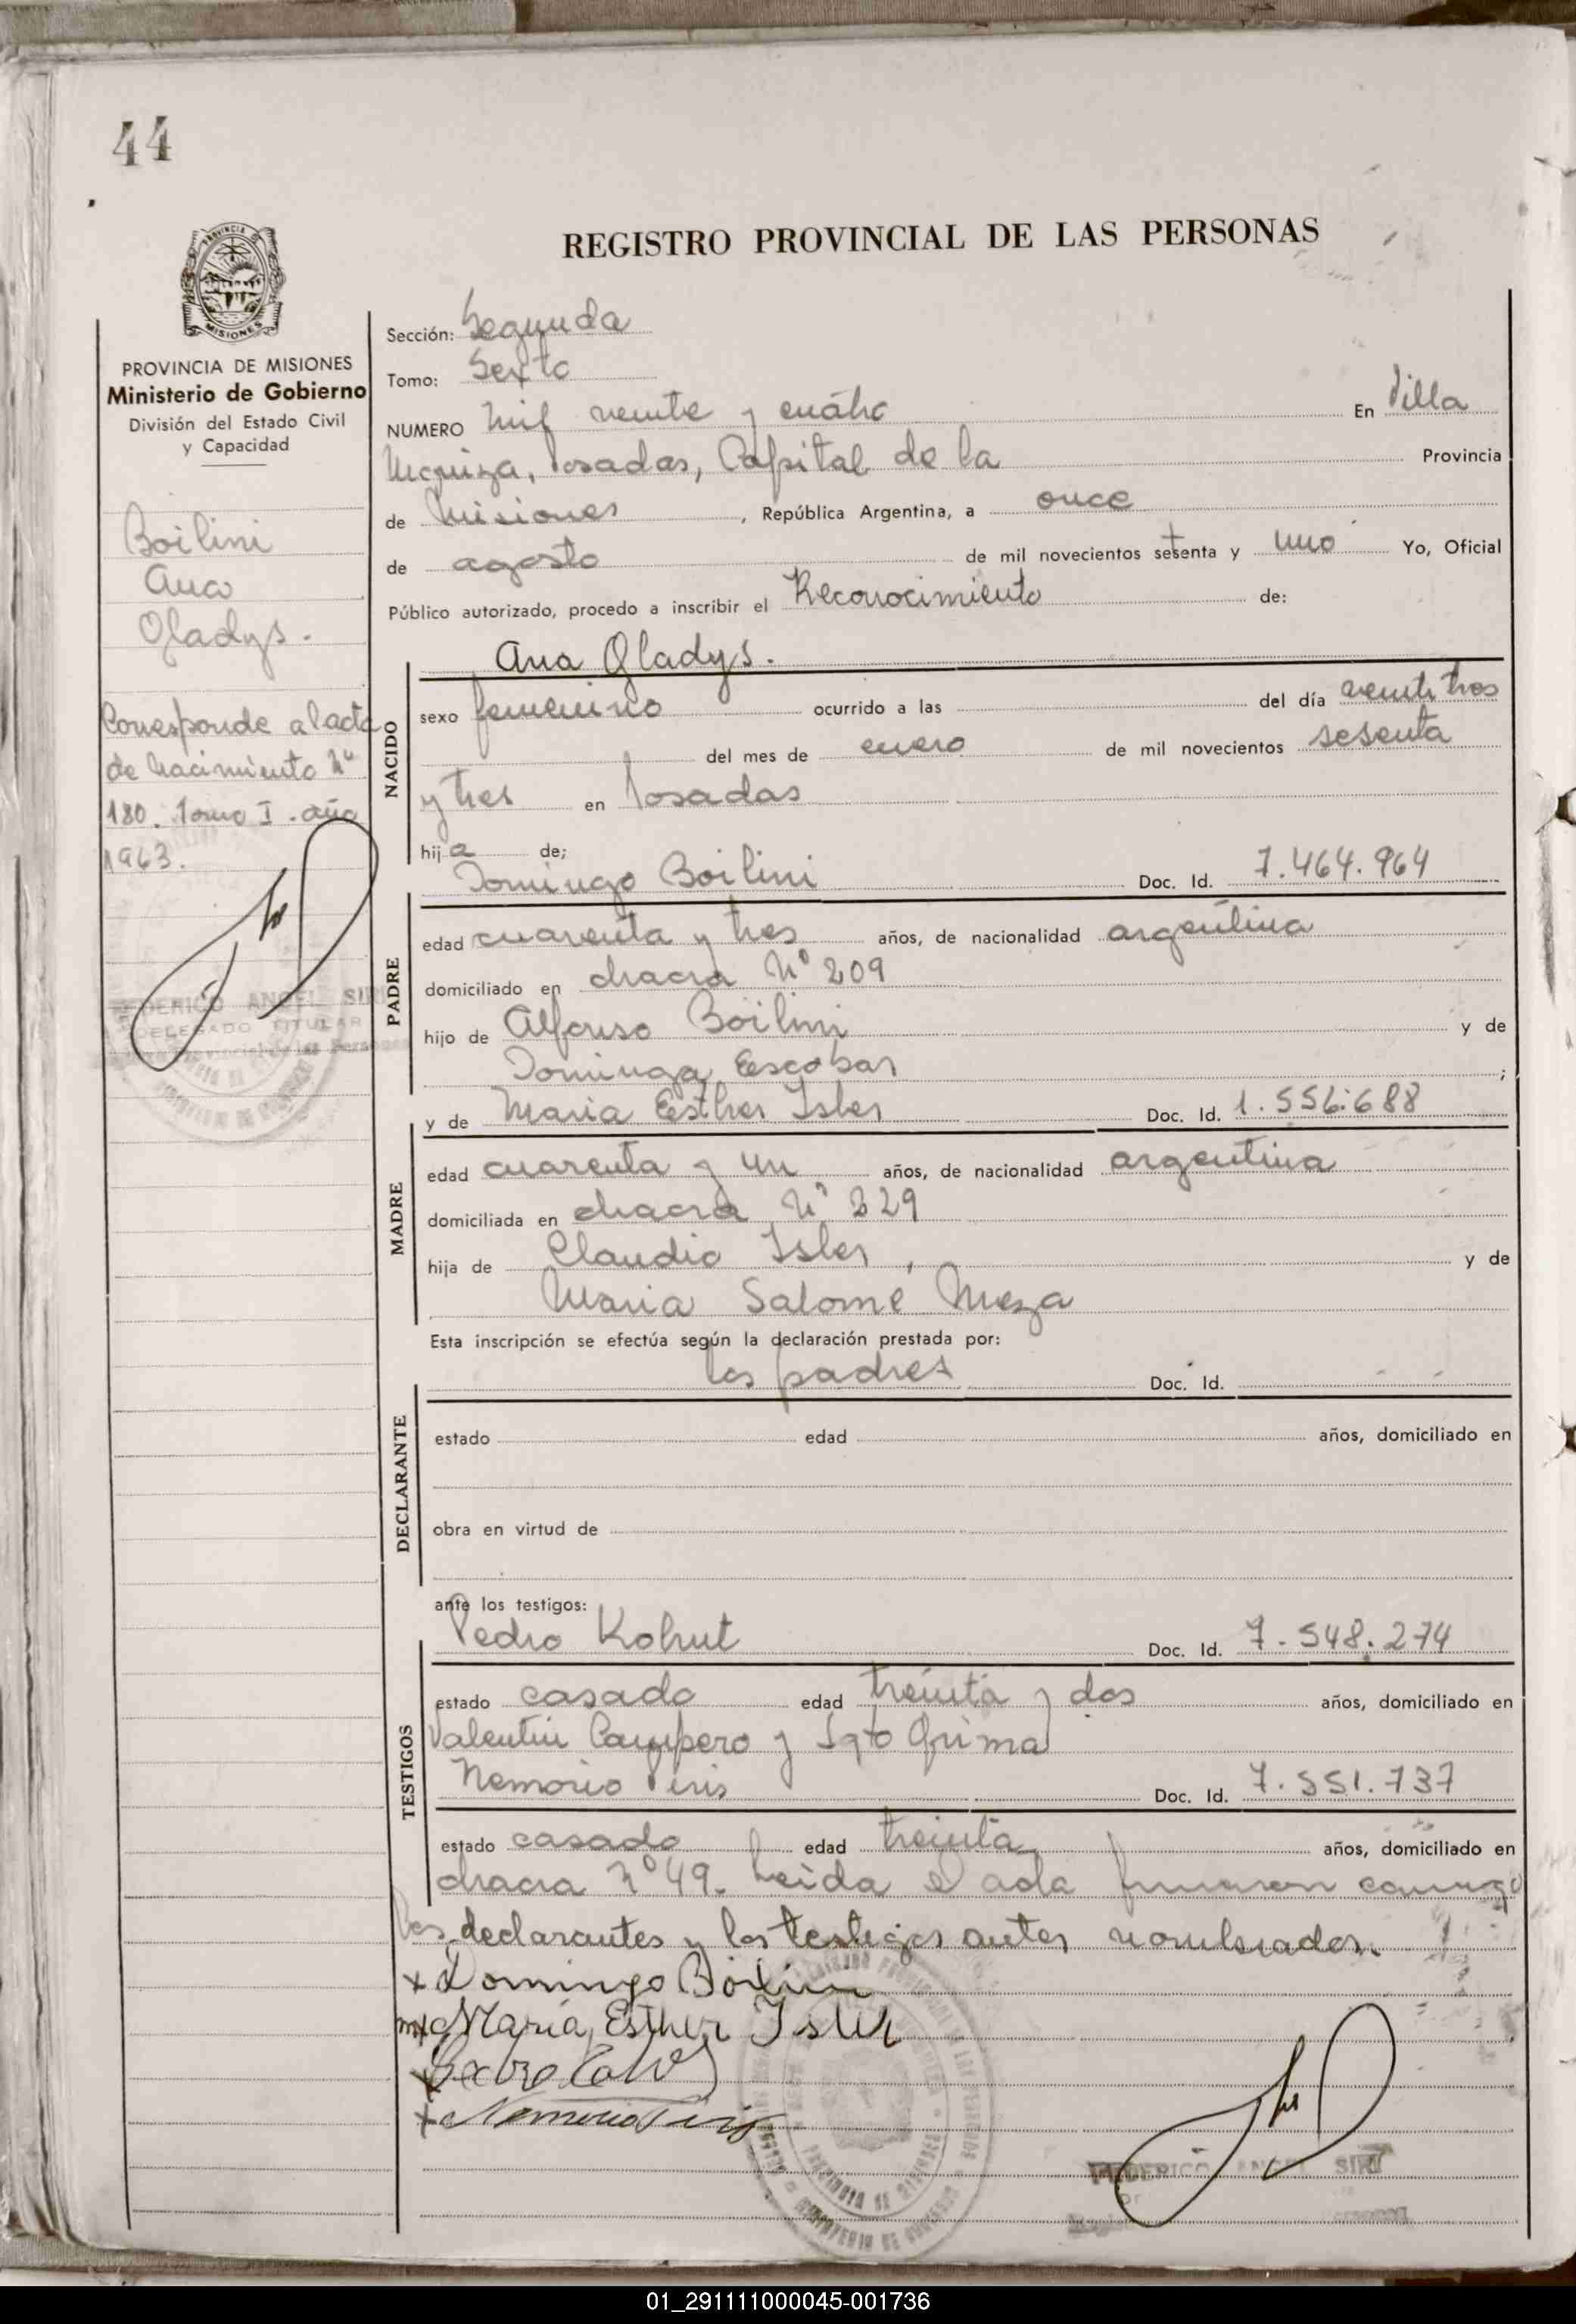 44
PROVINCIA DE
MISIONES
PROVINCIA DE MISIONES
Ministerio de Gobierno
División del Estado Civil
y Capacidad
Boilini
Ana
Gladys.
Corresponde al acta
de Nacimiento Nº
180. Tomo I. año
1963.
FEDERICO ANGEL SIRI
DELEGADO TITULAR
REGISTRO PROVINCIAL DE LAS PERSONAS
Sección: Segunda
Tomo: Sexto
NUMERO Mil veinte y cuátro En Villa
Urquiza, Posadas, Capital de la Provincia
de Misiones, República Argentina, a once
de agosto de mil novecientos setenta y uno Yo, Oficial
Público autorizado, procedo a inscribir el Reconocimiento de:
Ana Gladys.
NACIDO
sexo femenino ocurrido a las del día veinti tres
del mes de enero de mil novecientos sesenta
y tres en Posadas
hija de;
Domingo Boilini Doc. Id. 7.464.964
PADRE
edad cuarenta y tres años, de nacionalidad argentina
domiciliado en chacra Nº 209
hijo de Alfonso Boilini y de
Dominga Escobar ;
y de Maria Esther Isler Doc. Id. 1.556.688
MADRE
edad cuarenta y un años, de nacionalidad argentina
domiciliada en chacra Nº 229
hija de Claudio Isler, y de
Maria Salomé Meza
Esta inscripción se efectúa según la declaración prestada por:
los padres Doc. Id.
DECLARANTE
estado edad años, domiciliado en
obra en virtud de
ante los testigos:
Pedro Kohut Doc. Id. 7.548.274
TESTIGOS
estado casado edad treinta y dos años, domiciliado en
Valentin Campero y Sgto Grima
Nemorio Piris Doc. Id. 7.551.737
estado casado edad treinta años, domiciliado en
chacra Nº 49. Leida el acta firmaron conmigo
los declarantes y los testigos antes nombrados.
x Domingo Boilini
María Esther Isler
x Nemorio Piris
FEDERICO ANGEL SIRI
01_291111000045-001736